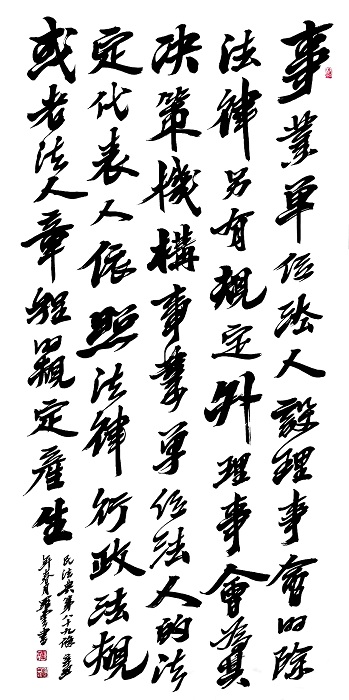 事業单位法人設理事會的除
法律另有規定外理事會為其
决策機構事業单位法人的法
定代表人依照法律行政法規
或者法人章程的規定產生
民法典第八十九條辛丑
年春月書